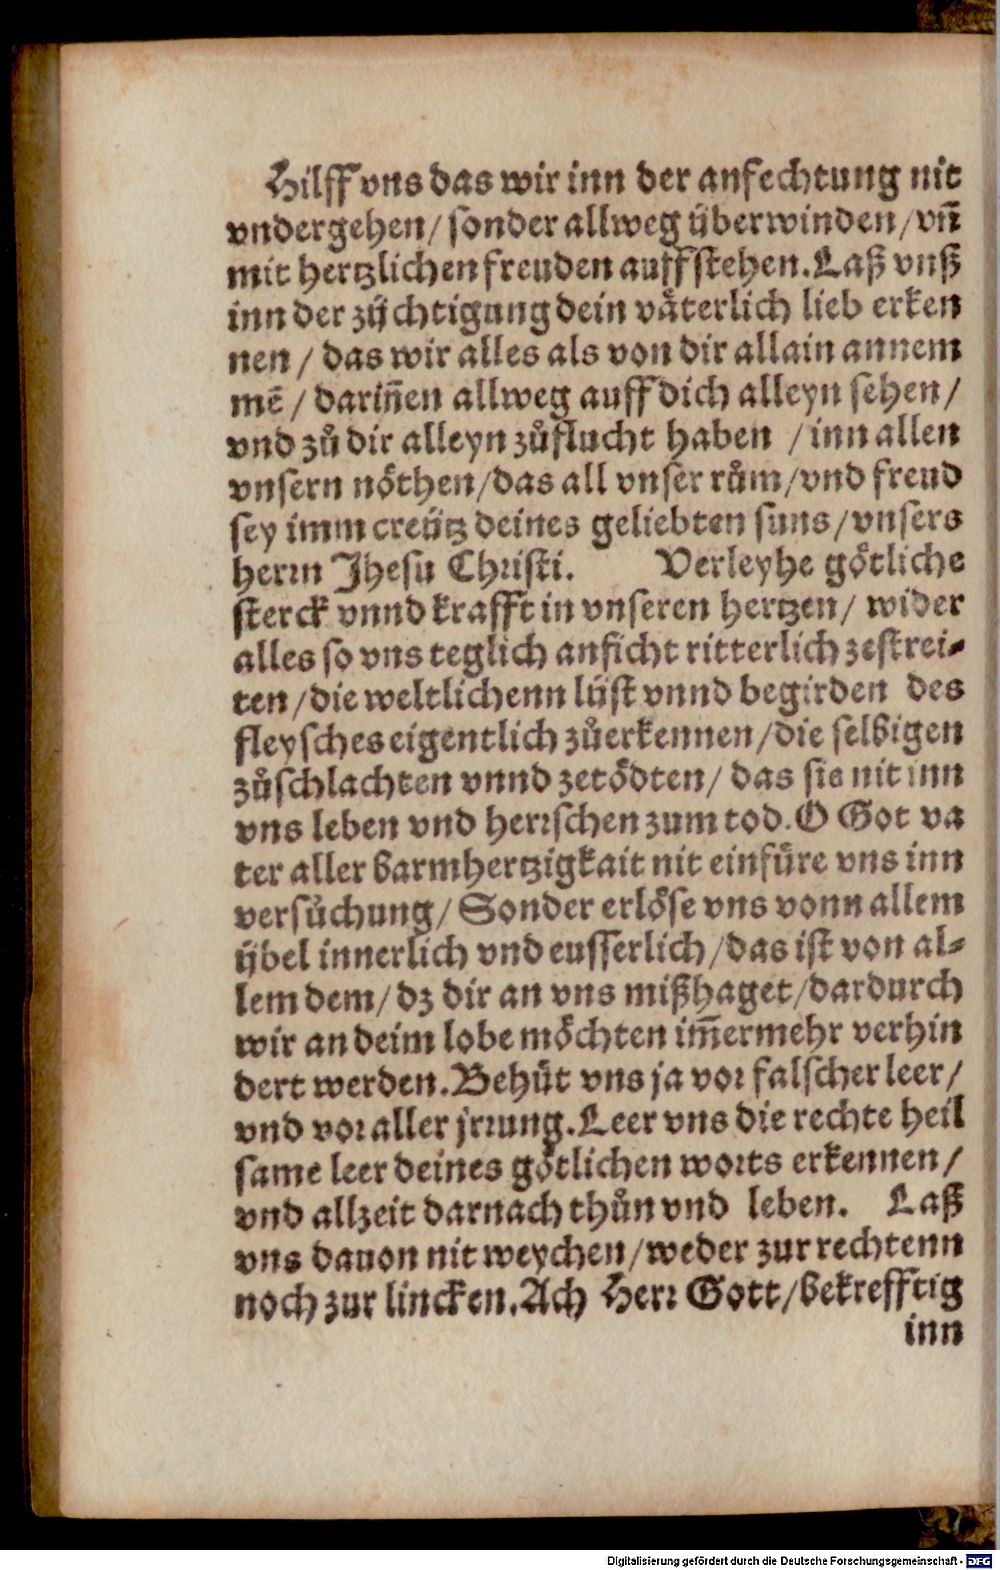 Hilff vns das wir inn der anfechtung nit
vndergehen/ sonder allweg überwinden/ vn̄
mit hertzlichen freuden auffstehen. Laß vnß
inn der züchtigung dein väterlich lieb erken
nen / das wir alles als von dir allain annem
mē / darin̄en allweg auff dich alleyn sehen/
vnd zů dir alleyn zůflucht haben / inn allen
vnsern nöthen/das all vnser rům/vnd freud
sey imm creütz deines geliebten suns/vnsers
herrn Jhesu Christi. Verleyhe götliche
sterck vnnd krafft in vnseren hertzen/ wider
alles so vns teglich anficht ritterlich zestrei-
ten/die weltlichenn lüst vnnd begirden des
fleysches eigentlich zůerkennen/die selbigen
zůschlachten vnnd zetödten/ das sie nit inn
vns leben vnd herrschen zum tod. O Got va
ter aller barmhertzigkait nit einfüre vns inn
versůchung/ Sonder erlöse vns vonn allem
übel innerlich vnd eusserlich/das ist von al-
lem dem/ dz dir an vns mißhaget/dardurch
wir an deim lobe möchten im̄ermehr verhin
dert werden. Behüt vns ja vor falscher leer/
vnd vor aller jrrung. Leer vns die rechte heil
same leer deines götlichen worts erkennen/
vnd allzeit darnach thůn vnd leben. Laß
vns dauon nit weychen/weder zur rechtenn
noch zur lincken. Ach Herr Gott/bekrefftig
inn
Digitalisierung gefördert durch die Deutsche Forschungsgemeinschaft - DFG